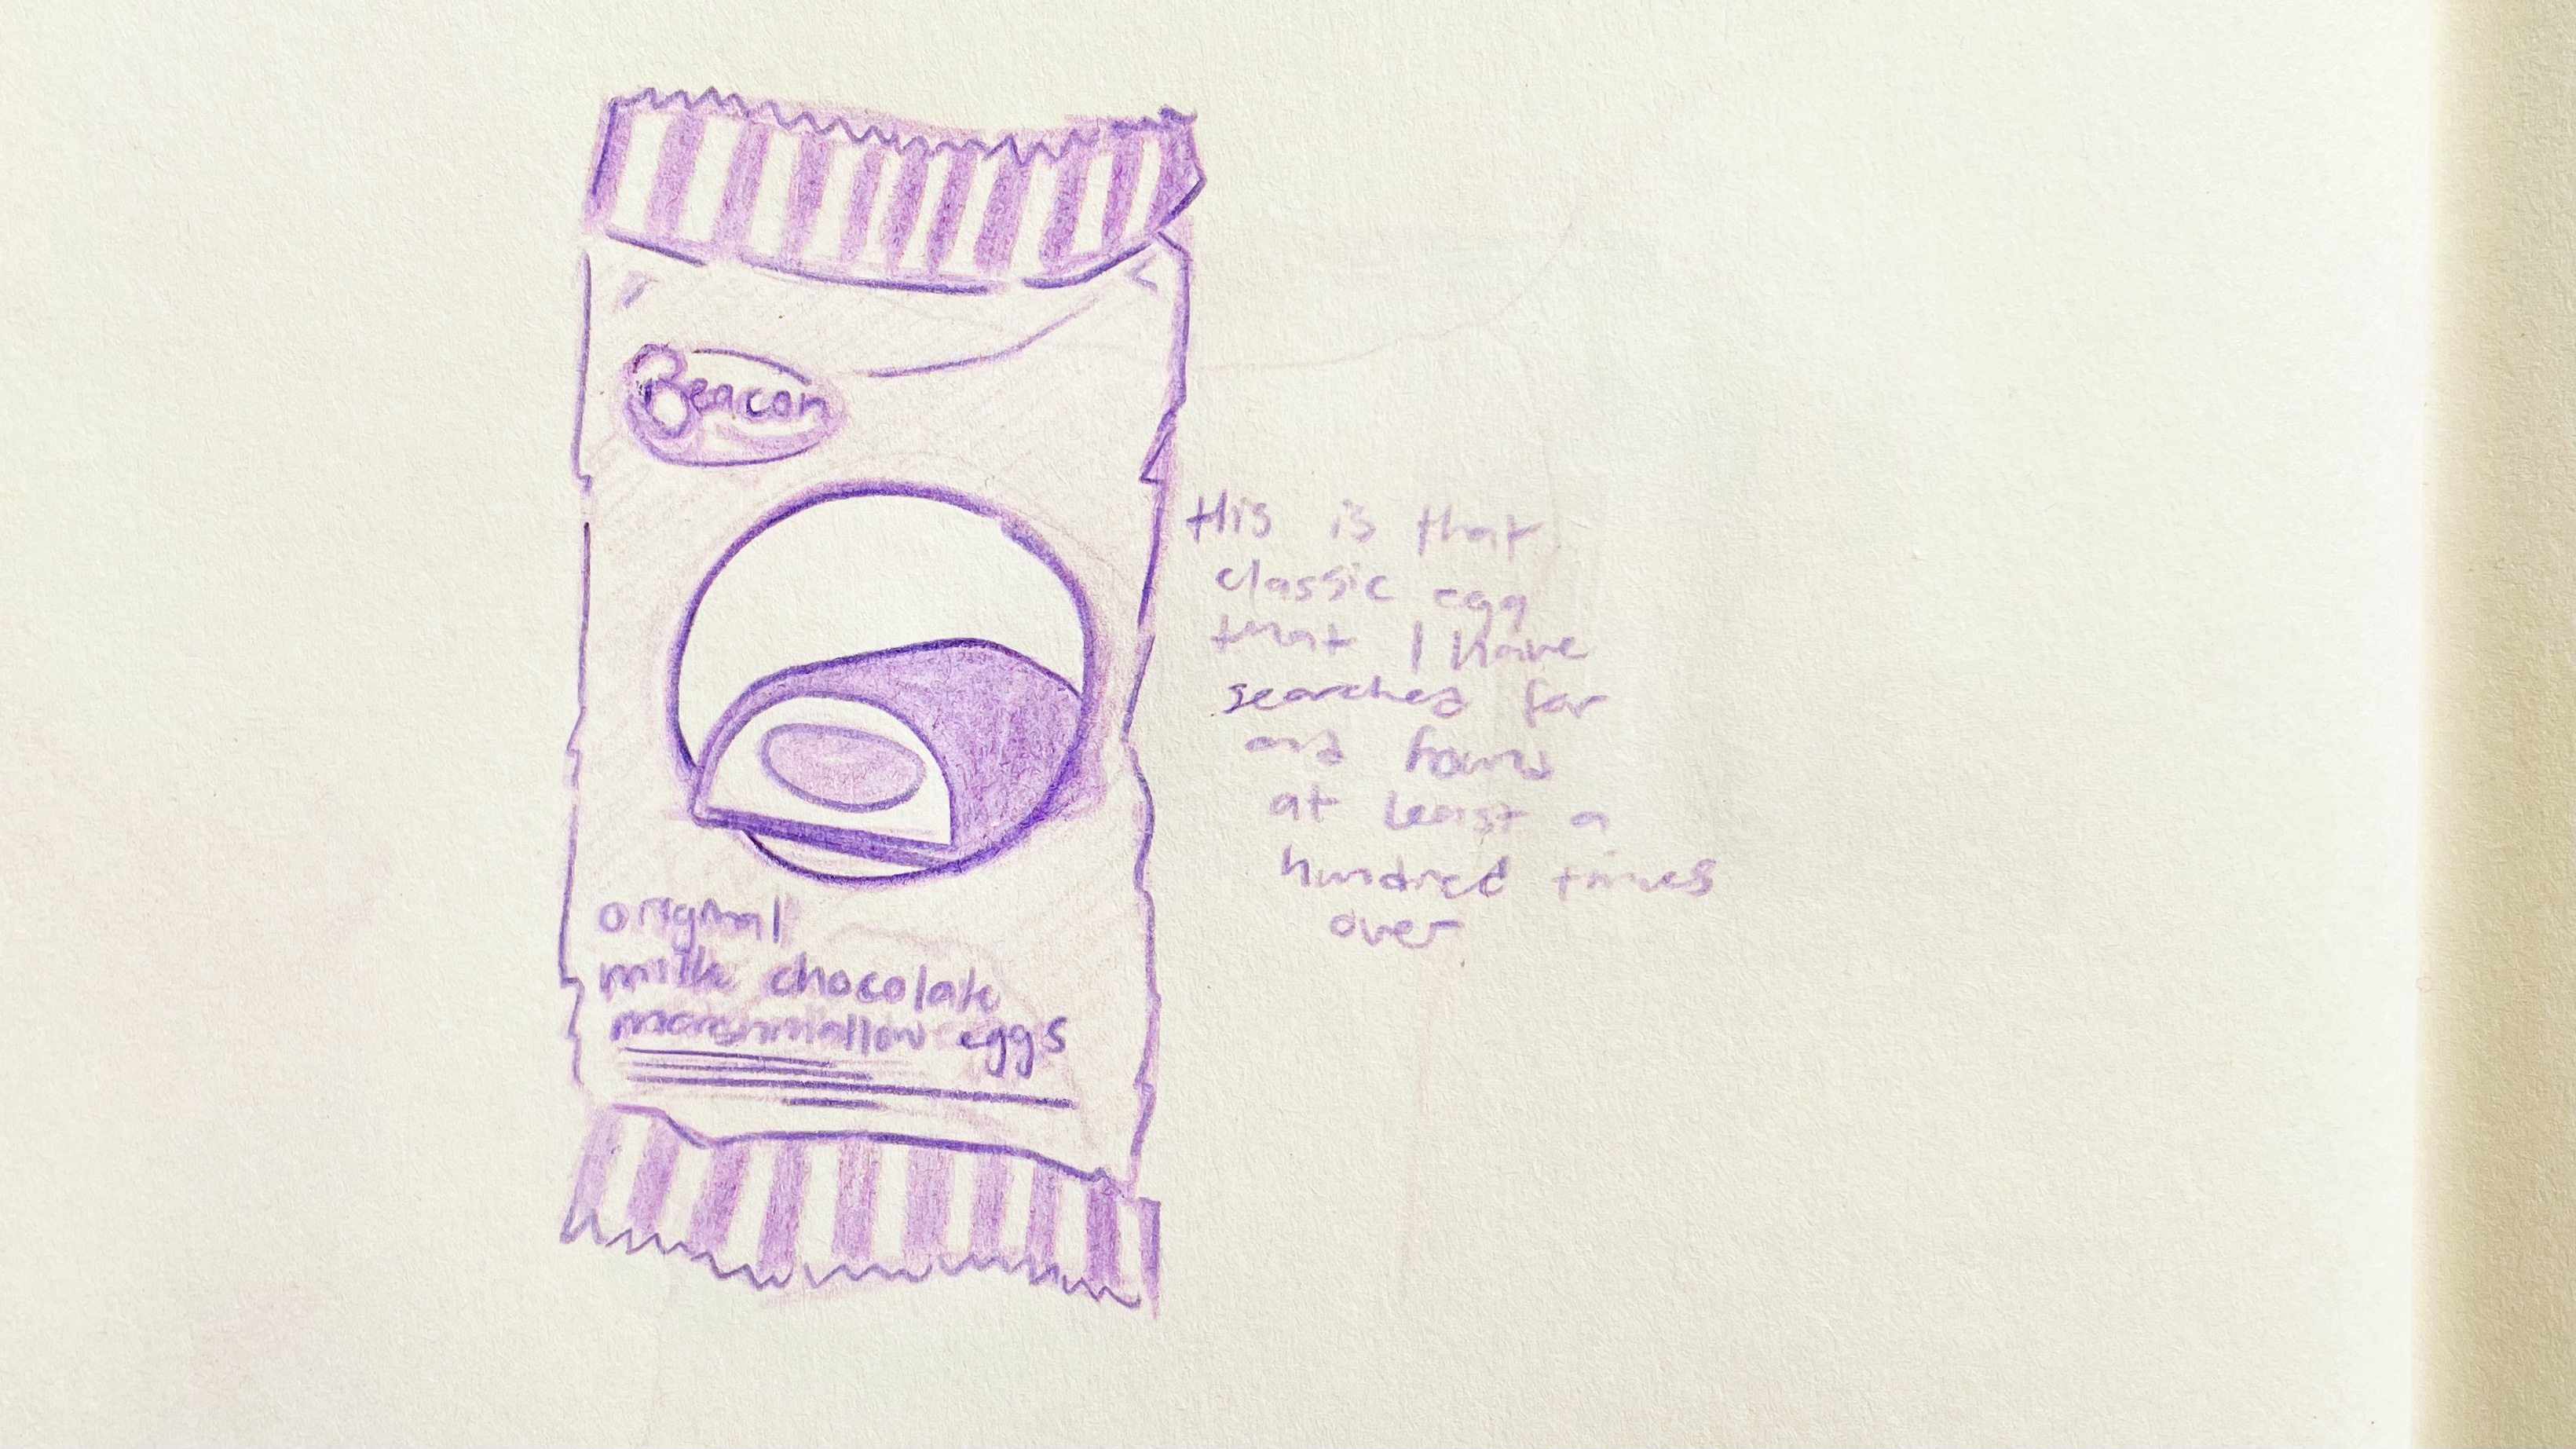 Beacon
original
milk chocolate
marshmallow eggs
this is that
classic egg
that I have
searched for
and found
at least a
hundred times
over